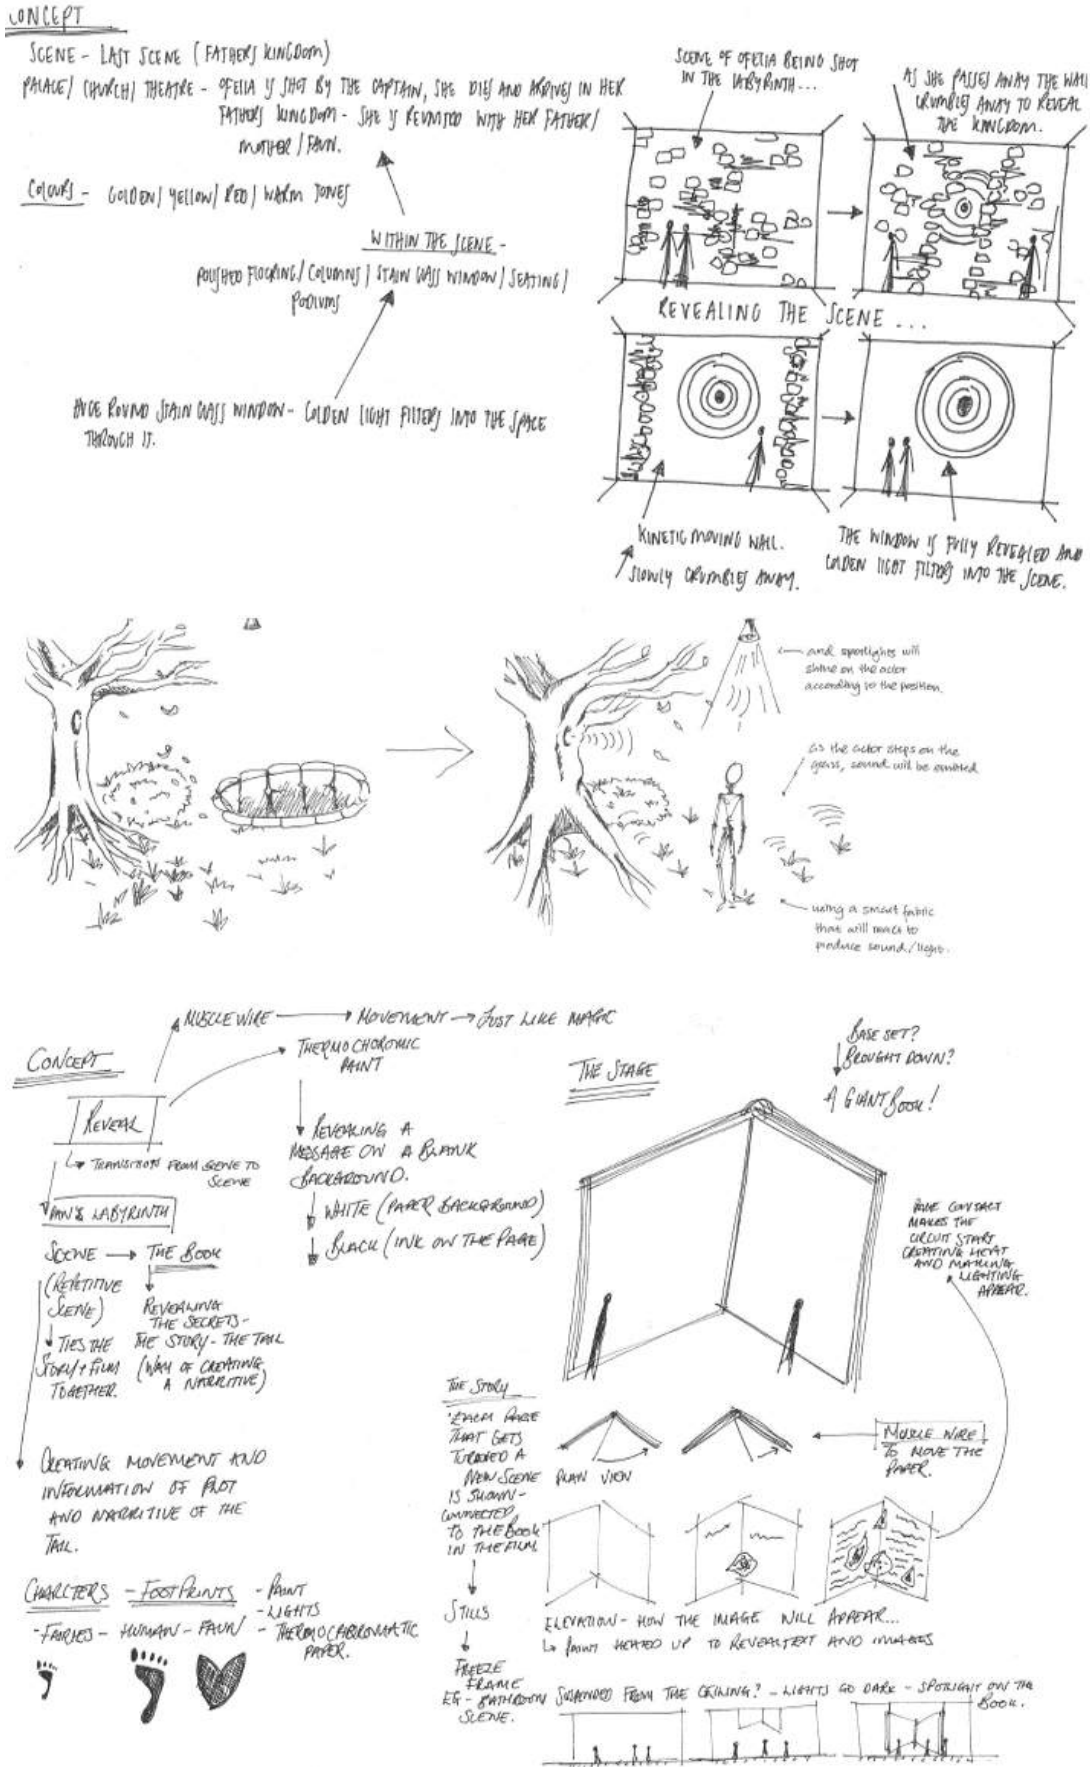 CONCEPT
SCENE - LAST SCENE (FATHERS KINGDOM)
PALACE / CHURCH / THEATRE - OFELIA IS SHOT BY THE CAPTAIN, SHE DIES AND ARRIVES IN HER
FATHERS KINGDOM - SHE IS REUNITED WITH HER FATHER /
MOTHER / FAUN.
COLOURS - GOLDEN / YELLOW / RED / WARM TONES
WITHIN THE SCENE -
POLISHED FLOORING / COLUMNS / STAIN GLASS WINDOW / SEATING /
PODIUMS
HUGE ROUND STAIN GLASS WINDOW - GOLDEN LIGHT FILTERS INTO THE SPACE
THROUGH IT.
SCENE OF OFELIA BEING SHOT
IN THE LABYRINTH...
AS SHE PASSES AWAY THE WALL
CRUMBLES AWAY TO REVEAL
THE KINGDOM.
REVEALING THE SCENE...
KINETIC MOVING WALL.
SLOWLY CRUMBLES AWAY.
THE WINDOW IS FULLY REVEALED AND
GOLDEN LIGHT FILTERS INTO THE SCENE.
and spotlights will
shine on the actor
according to the position.
as the actor steps on the
grass, sound will be emitted
using a smart fabric
that will react to
produce sound/light.
CONCEPT
MUSCLE WIRE MOVEMENT JUST LIKE MAGIC
THERMOCHOROMIC
PAINT
REVEAL
TRANSITION FROM SCENE TO
SCENE
PAN'S LABYRINTH
SCENE THE BOOK
(REPETITIVE
SCENE)
TIES THE
STORY + FILM
TOGETHER.
REVEALING
THE SECRETS -
THE STORY - THE TAIL
(WAY OF CREATING
A NARRITIVE)
REVEALING A
MESSAGE ON A BLANK
BACKGROUND.
WHITE (PAPER BACKGROUND)
BLACK (INK ON THE PAGE)
CREATING MOVEMENT AND
INFORMATION OF PLOT
AND NARRITIVE OF THE
TAIL.
CHARCTERS - FOOTPRINTS - PAINT
- LIGHTS
- FAIRIES - HUMAN - FAUN - THERMOCHROMATIC
PAPER.
THE STAGE
BASE SET?
BROUGHT DOWN?
A GIANT BOOK!
CONTACT
MAKES THE
CIRCUIT START
CREATING HEAT
AND MAKING
LIGHTING
APPEAR.
THE STORY
EACH PAGE
THAT GETS
TURNED A
NEW SCENE
IS SHOWN -
CONNECTED
TO THE BOOK
IN THE FILM
STILLS
FREEZE
FRAME
EG - BATHROOM
SCENE.
PLAN VIEW
MUSCLE WIRE
TO MOVE THE
PAPER.
ELEVATION - HOW THE IMAGE WILL APPEAR...
PAINT HEATED UP TO REVEAL TEXT AND IMAGES
SUSPENDED FROM THE CEILING? - LIGHTS GO DARK - SPOTLIGHT ON THE
BOOK.